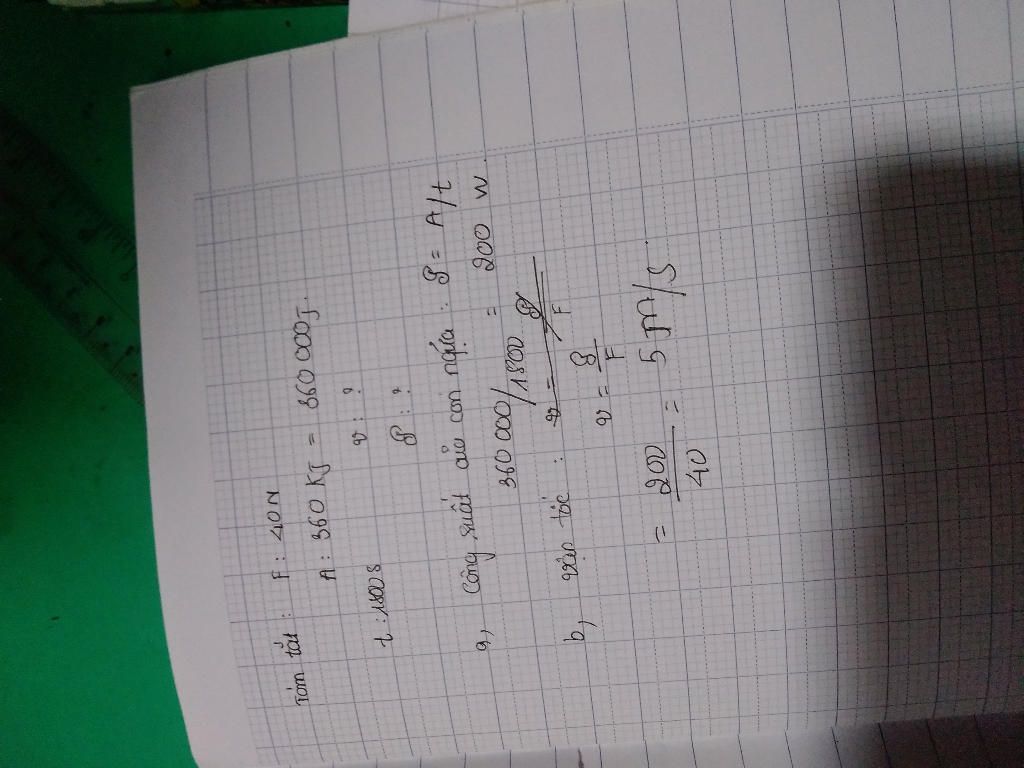 Tóm tắt : F : 40 N
A : 360 KJ = 360 000 J.
t : 1800s v : ?
P : ?
a, Công suất của con ngựa : P = A/t
360 000/1800 = 200 W
b, vận tốc : v = P/F
v = P/F
= 200/40 = 5 m/s.